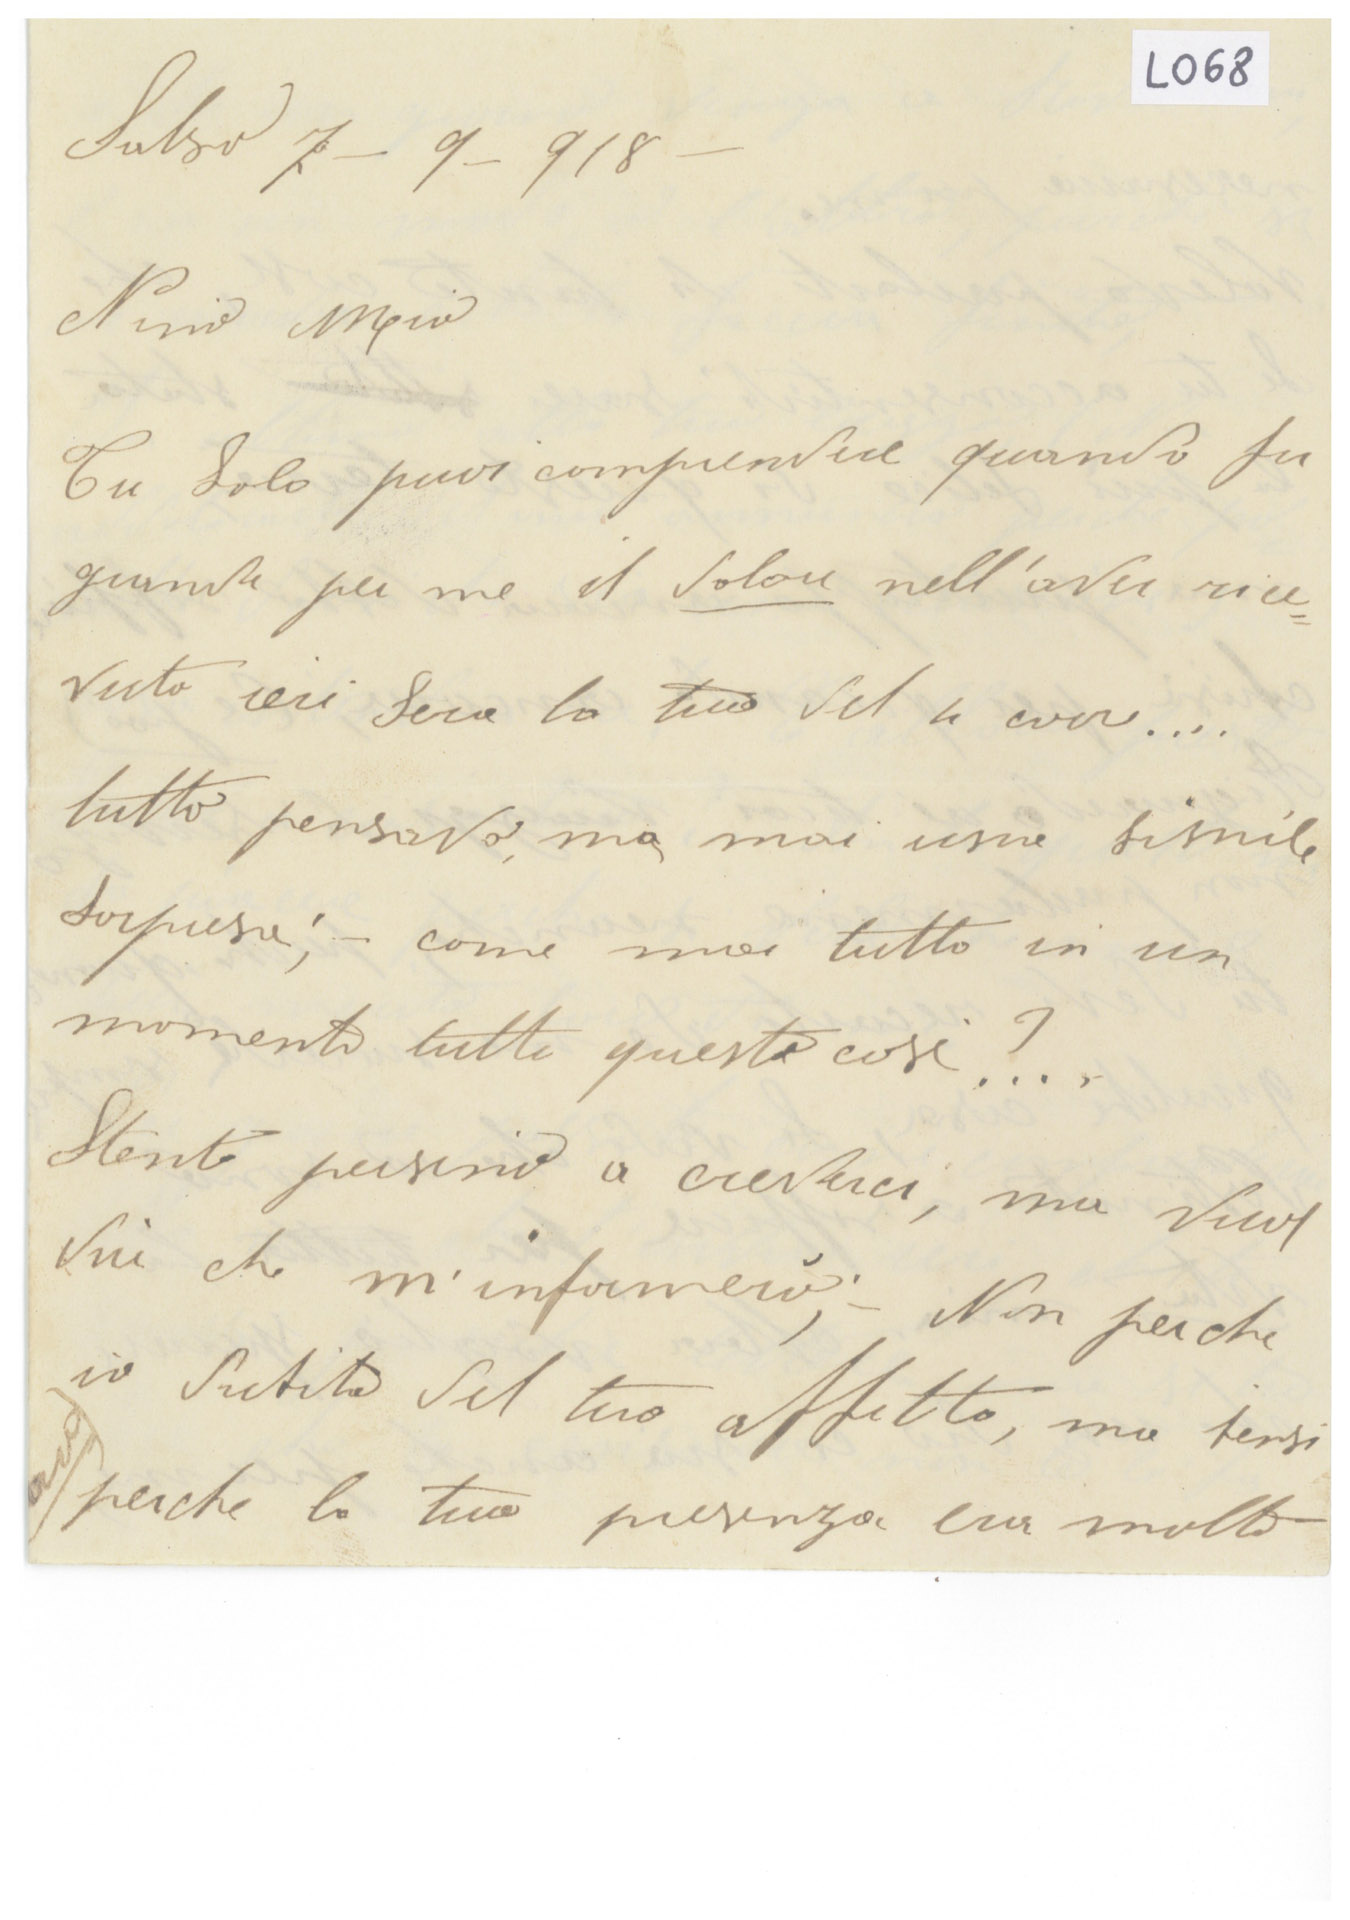 L068
Salso 7 - 9 - 918 -
Nino mio
Tu solo puoi comprendere quando fu
grande per me il dolore nell'aver rice=
vuto ieri sera la tua del u corr....
tutto pensavo, ma mai una simile
sorpresa; - come mai tutto in un
momento tutte queste cose?....
Stento persino a crederci, ma vuol
dire che m'informerò; - Non perche
io dubito del tuo affetto, ma bensi
perche la tua presenza era molto